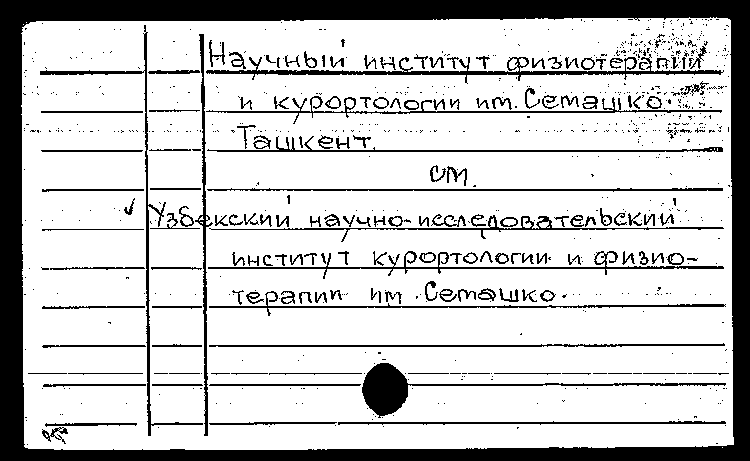 Научный институт физиотерапии
и курортологии им. Семашко.
Ташкент.
см.
✓ Узбекский научно-исследовательский
институт курортологии и физио-
терапии им. Семашко.